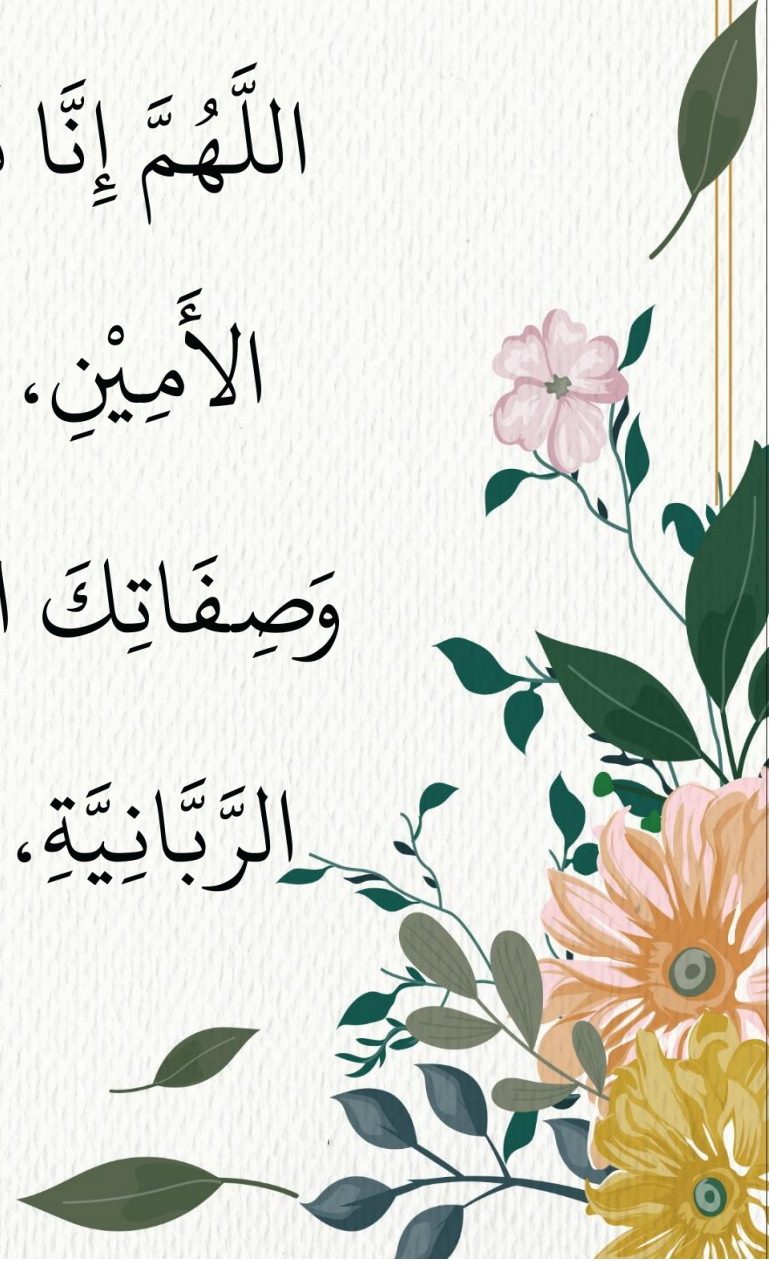 اللَّهُمَّ إِنَّا
الأَمِيْنِ،
وَصِفَاتِكَ
الرَّبَّانِيَّةِ،